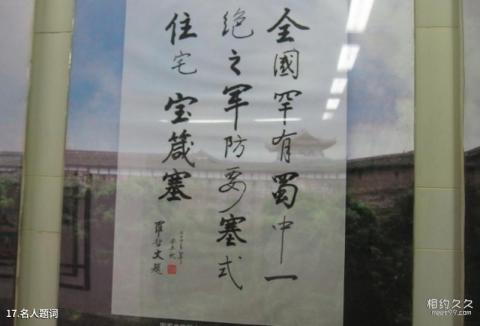 全國罕有蜀中一
絶之軍防要塞式
住宅宝箴塞
羅哲文題
17.名人题词
相约久久
meet99.com